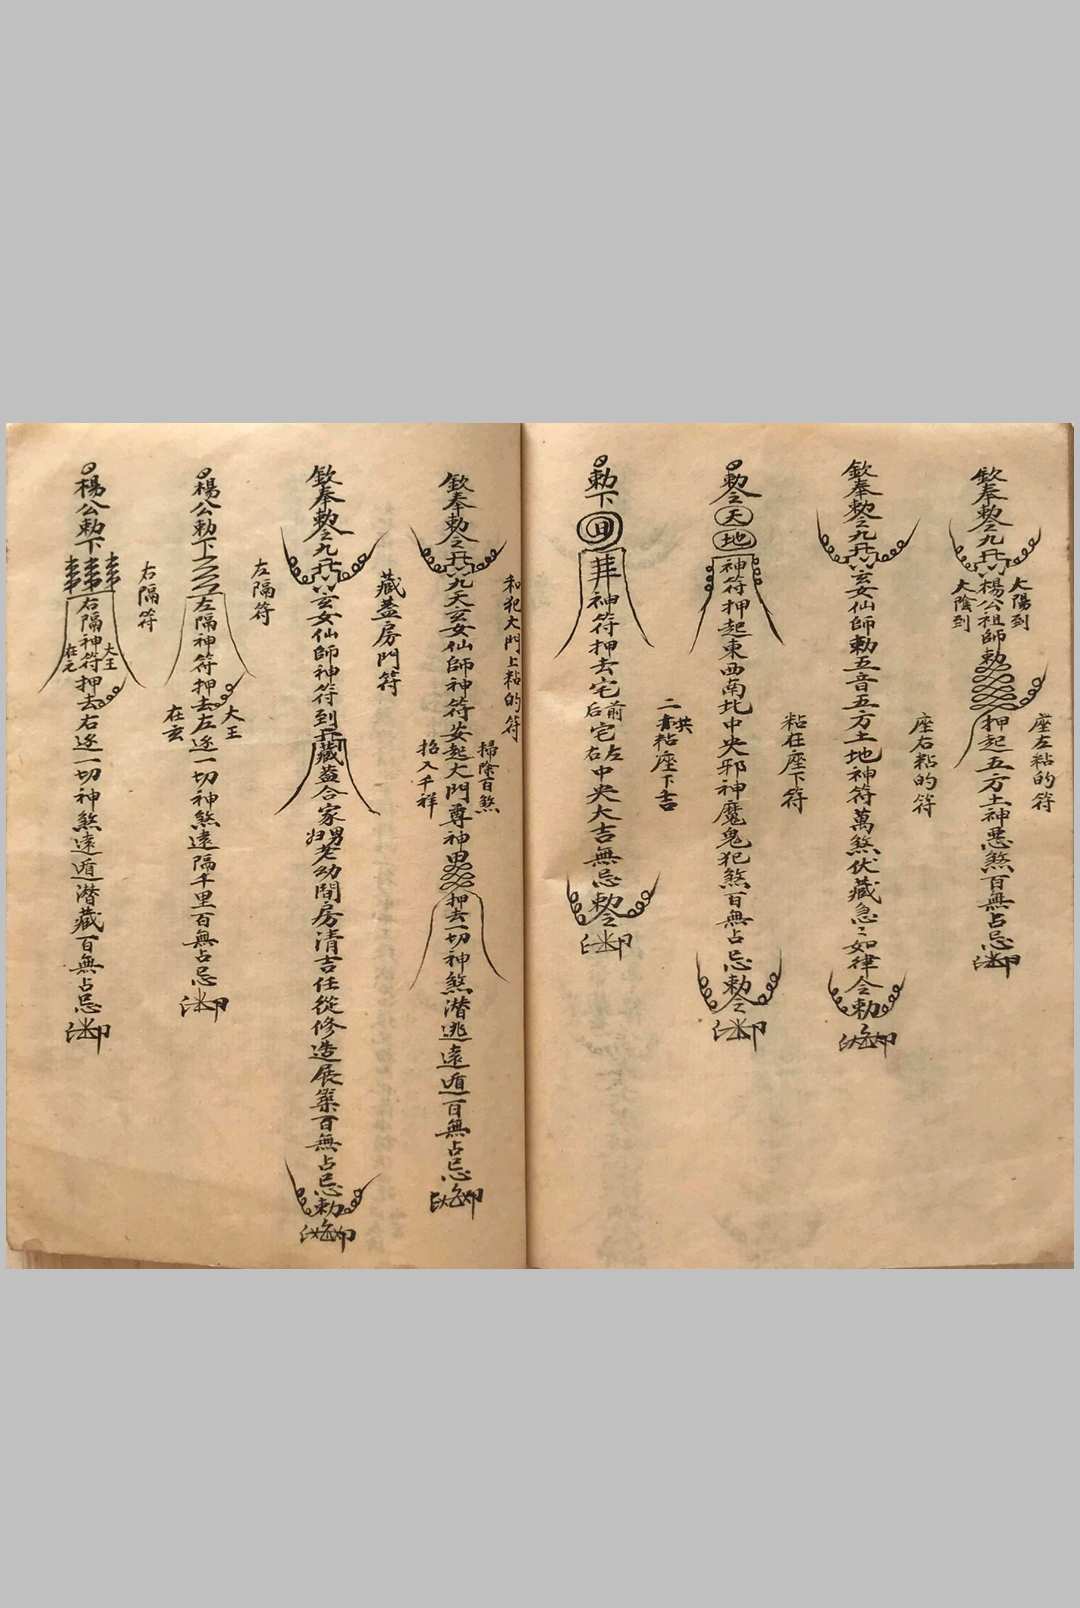 座左粘的符
欽奉勅令九天楊公祖師勅押起五方土神惡煞百無占忌
太陽到
太陰到
座右粘的符
欽奉勅令九天玄女仙師勅五音五方土地神符萬煞伏藏急〻如律令勅
粘在座下符
勅令天地神符押起東西南北中央邪神魔鬼犯煞百無占忌勅令
二共粘座下吉
勅下神符押去宅前后宅左右中央大吉無忌勅令
和犯大門上粘的符
欽奉勅令九天玄女仙師神符安起大門尊神押去一切神煞潜逃遠遁百無占忌
掃除百煞
招入千祥
藏蓋房門符
欽奉勅令九天玄女仙師神符到藏蓋合家男妇老幼閤房清吉任從修造展築百無占忌勅
左隔符
楊公勅下左隔神符押去左逐一切神煞遠隔千里百無占忌
大王
在玄
右隔符
楊公勅下右隔神符押去右逐一切神煞遠遁潜藏百無占忌
大王